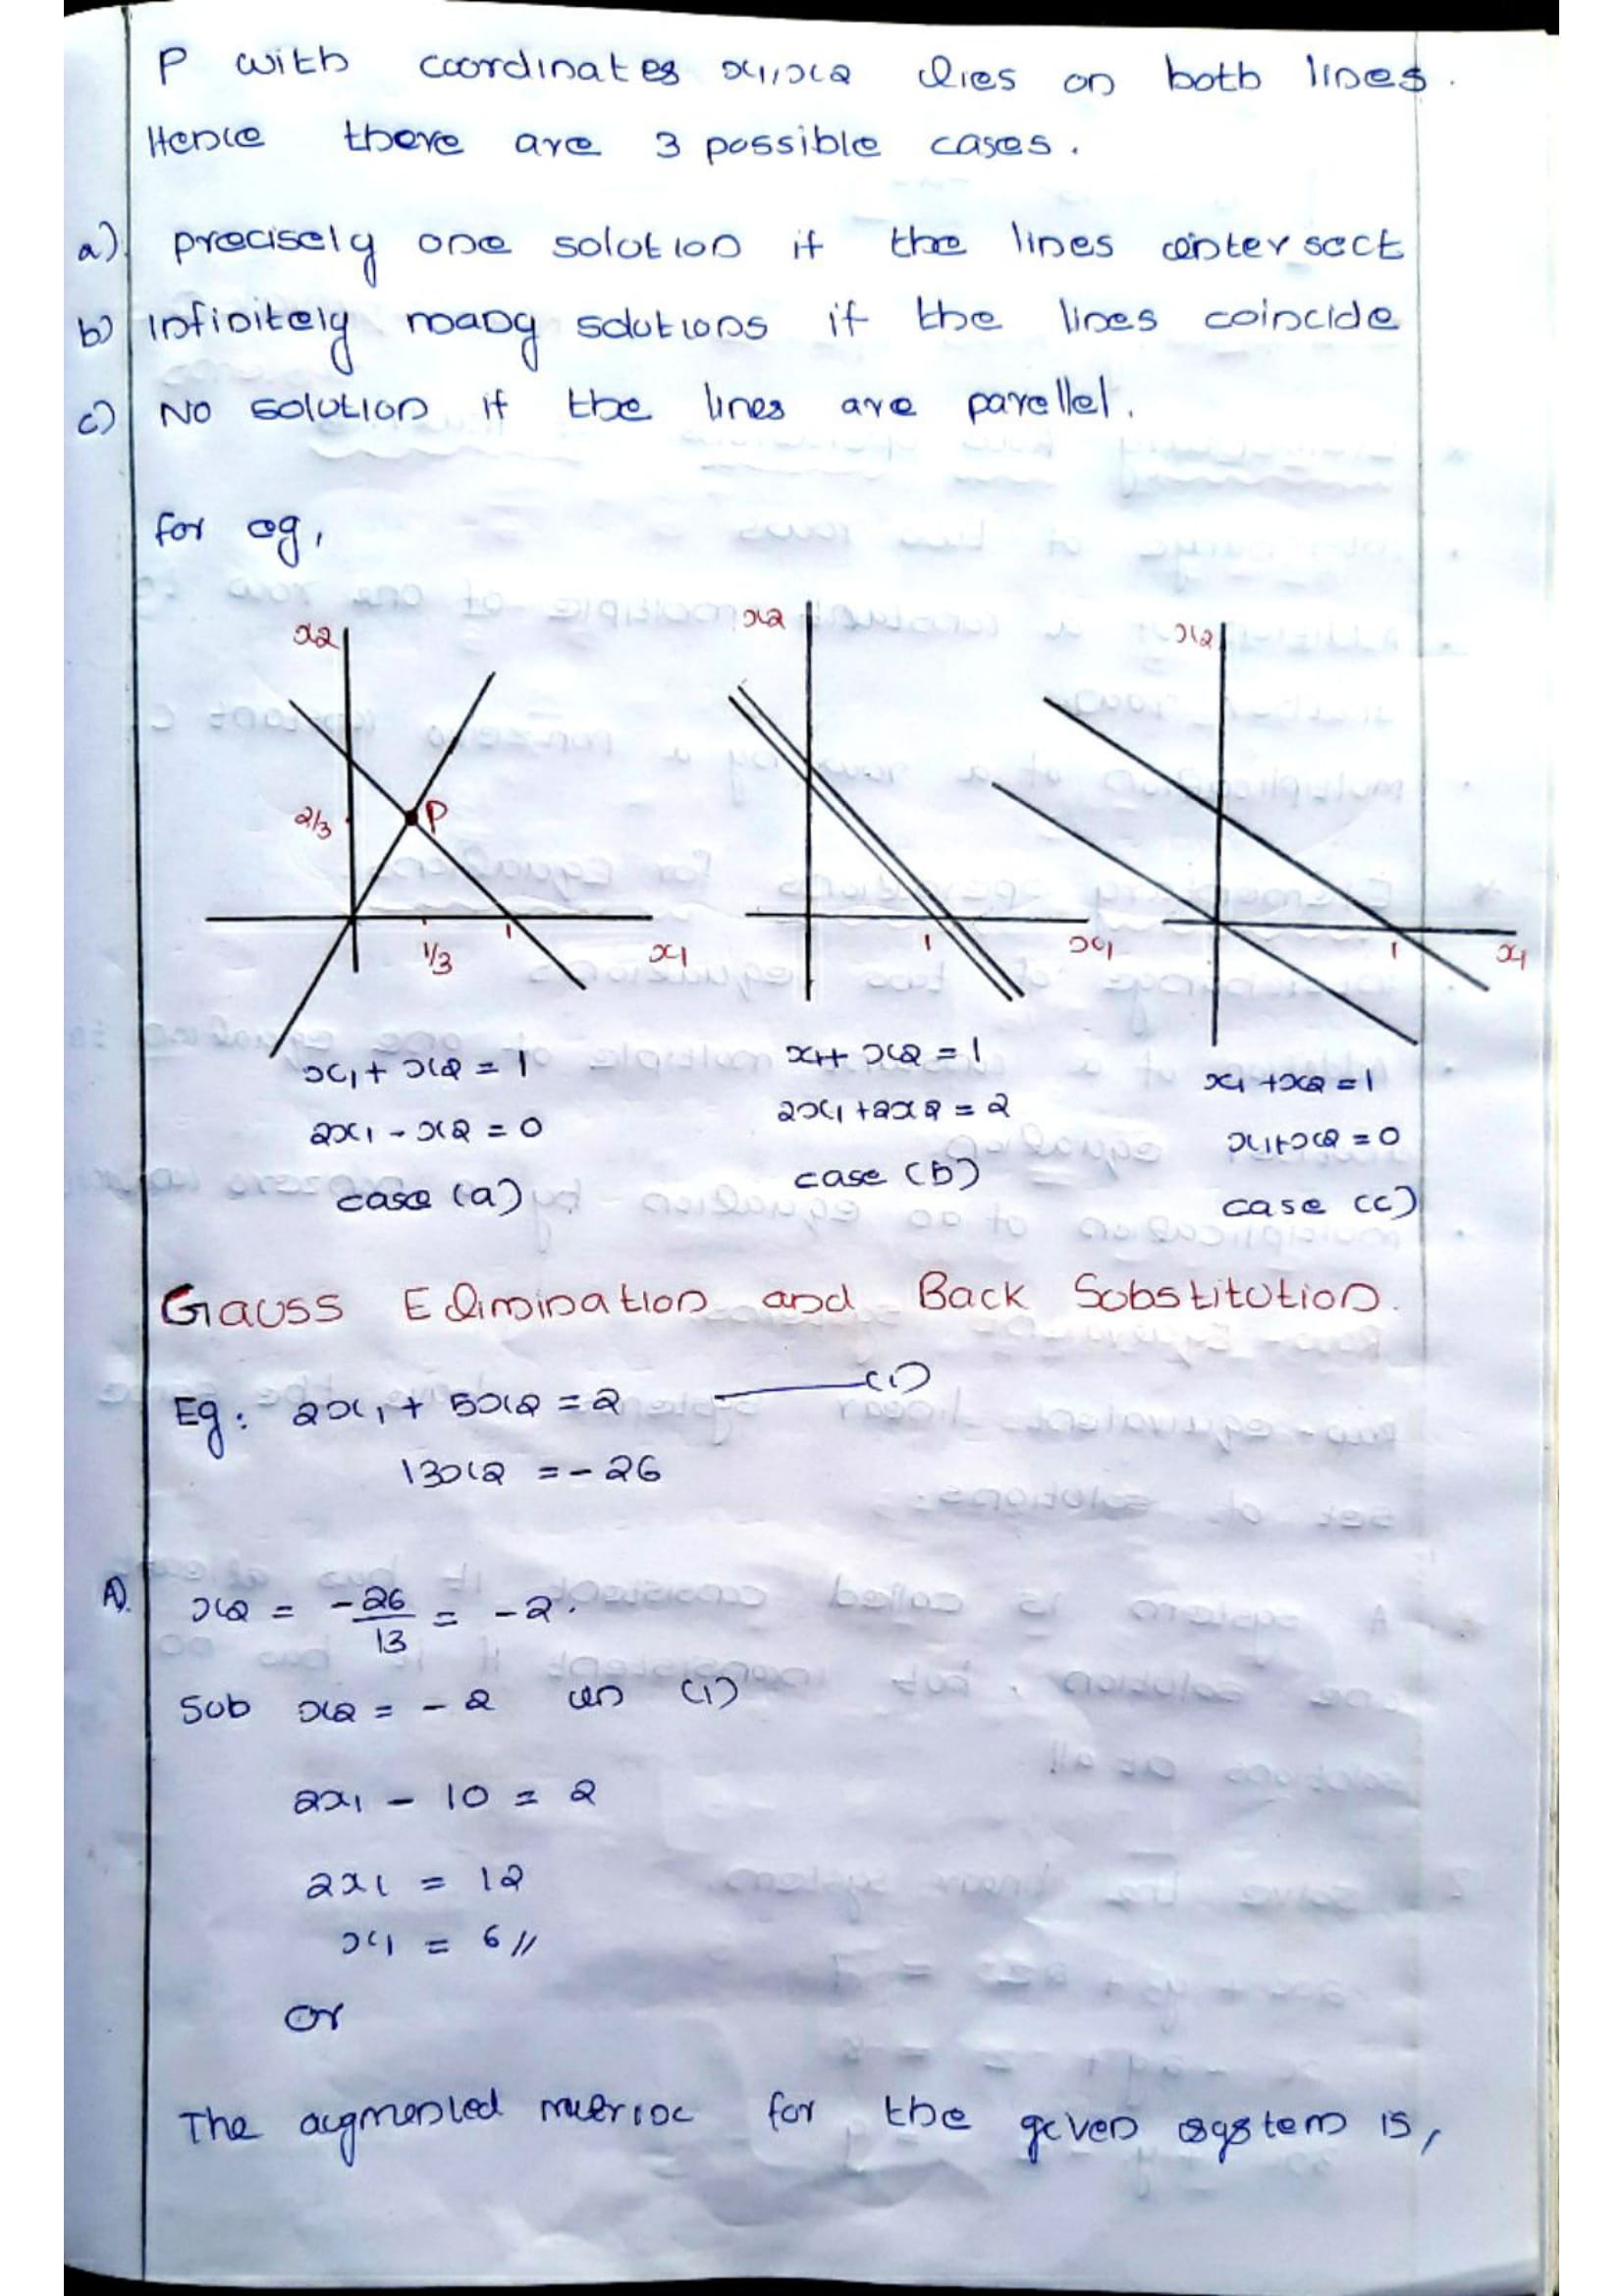 P with coordinates x1,x2 lies on both lines.
Hence there are 3 possible cases.
a) precisely one solution if the lines intersect
b) Infinitely many solutions if the lines coincide
c) No solution if the lines are parellel.
for eg,
x2
2/3
P
1/3
1
x1
x1 + x2 = 1
2x1 - x2 = 0
case (a)
x2
1
x1
x1+ x2 = 1
2x1 + 2x2 = 2
case (b)
x2
1
x1
x1 + x2 = 1
x1+x2 = 0
case (c)
Gauss Elimination and Back Substitution.
Eg: 2x1 + 5x2 = 2 ——(1)
13x2 = -26
A). x2 = -26/13 = -2.
Sub x2 = -2 in (1)
2x1 - 10 = 2
2x1 = 12
x1 = 6//
or
The augmented for the given system is,